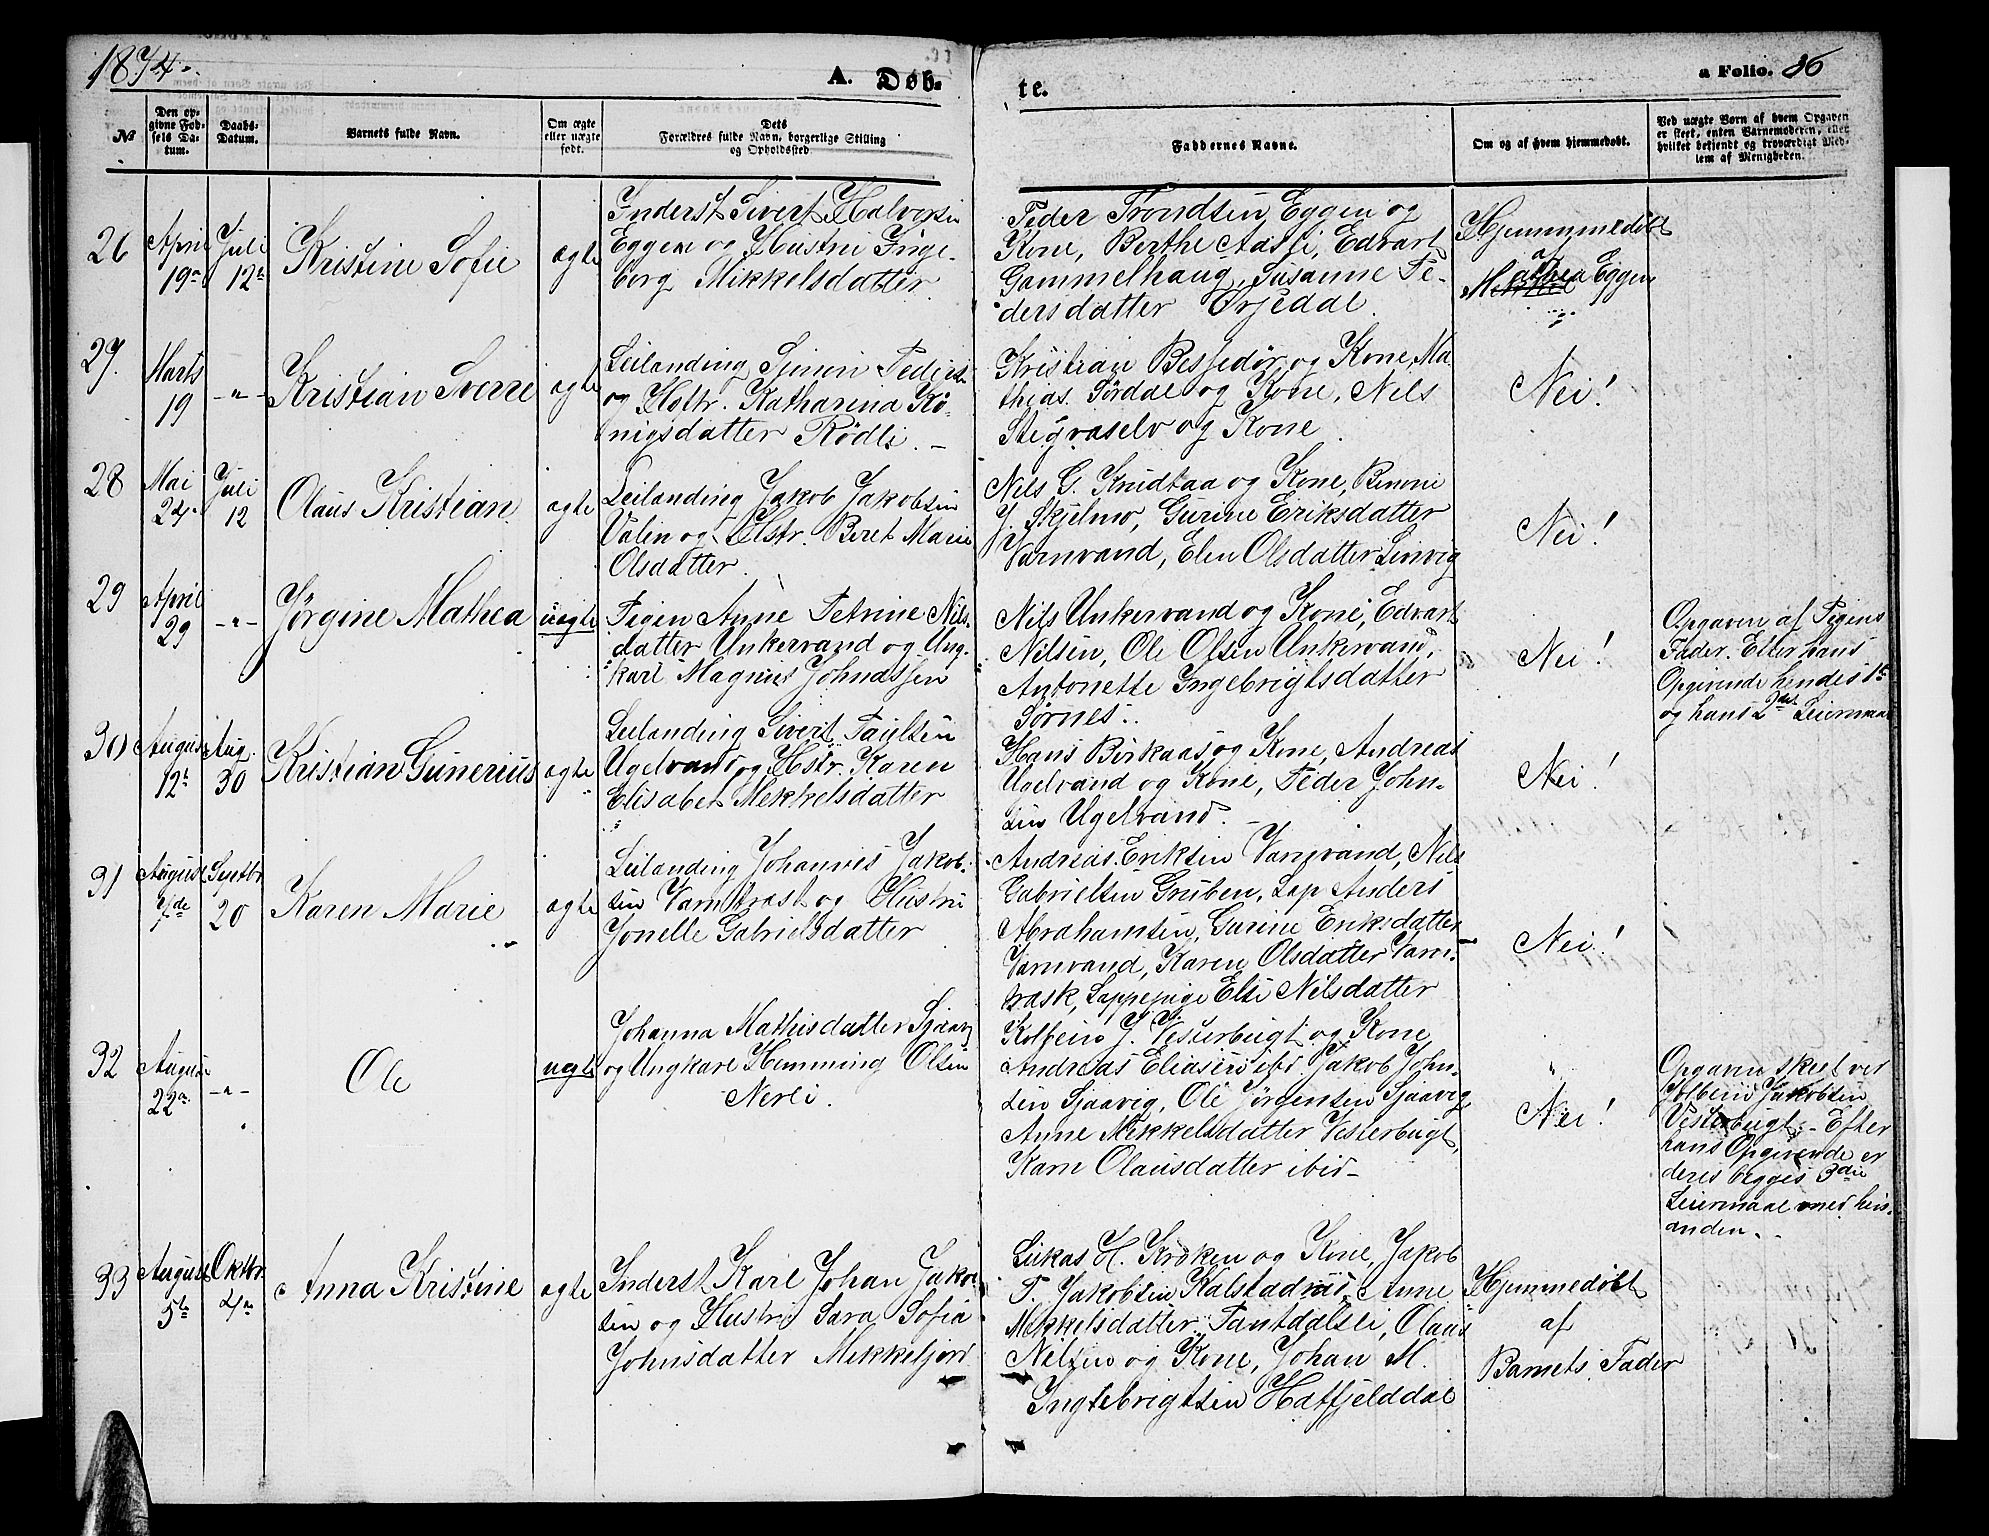 1874.
A. Døb-
te.
a Folio. 86
№
Den op-
givne Fød-
sels Da-
tum.
Daabs-
Datum.
Barnets fulde Navn.
Om ægte
eller uægte
født.
Dets
Forældres fulde Navn, borgerlige Stilling
og Opholdssted.
Faddernes Navne.
Om og af hvem hjemmedøbt.
Ved uægte Børn af hvem Opgaven
er skeet, enten Barnemoderen, eller
hvilket bekjendt og troværdigt Med-
lem af Menigheden.
26
April
19de
Juli
12te
Kristine Sofie
ægte
Inderst Sivert Halvorsen
Eggen og Hustru Inge-
borg Mikkelsdatter
Peder Trondsen Eggen og
Kone, Berthe Aasli, Edvart
Gammelhaug, Susanne Pe-
dersdatter Ørjedal.
Hjemmedøbt
af
Mathea Eggen
27.
Marts
19
-"-
Kristian Sverre
ægte
Leilænding Simon Peders.
og Hstr. Katharina Kö-
nigsdatter Rødli. -
Kristian Besjedør og Kone, Ma
theas Sørdal og Kone, Nils
Stegvaselv og Kone.
Nei!
28
Mai
24
Juli
12
Olaus Kristian
ægte
Leilænding Jakob Jakobsen
Valin og Hstr. Beret Marie
Olsdatter.
Nils G. Knudtaa og Kone, Benoni
J. Skjelmo, Gurine Eriksdatter
Varnvand, Elen Olsdatter Linvig
Nei!
29
April
29
-"-
Jørgine Mathea
uægte
Pigen Anne Petrine Nils-
datter Unkervand og Ung-
karl Magnus Johnassen
Nils Unkervand og Kone, Edvart
Nilsen, Ole Olsen Unkervand,
Antonette Ingebrigtsdatter
Sørnes.
Nei!
Opgaven af Pigens
Fader. Efter hans
Opgivende hendes 1ste
og hans 2det Leiermaal
30
August
12te
Aug.
30
Kristian Gunerius
ægte
Leilænding Sivert Paulsen
Ugelvand og Hstr. Karen
Elisabet Mekkelsdatter
Hans Birkaas og Kone, Andreas
Ugelvand og Kone, Peder John-
sen Ugelvand. -
Nei!
31
August
7de
Septbr
20
Karen Marie
ægte
Leilænding Johannes Jakob-
sen Varntrask og Hustru
Jonelle Gabrielsdatter
Andreas Eriksen Varnvand, Nils
Gabrielsen Gruben, Lap Anders
Abrahamsen, Gurine Eriksdatter
Varnvand, Karen Olsdatter Varn-
trask, Lappepige Else Nilsdatter
Nei!
32
August
22de
-"-
Ole
uægte
Johanna Mathisdatter Sjaavig
og Ungkarl Hemming Olsen
Nerli.
Kolbein J. Vesterbugt og Kone,
Andreas Eliasen ibd Jakob John-
sen Sjaavig, Ole Jørgensen Sjaavig
Anne Mikkelsdatter Vesterbugt,
Karn Olausdatter ibid-
Nei!
Opgaven skeet ved
Kolbein Jakobsen
Vesterbugt. - Efter
hans Opgivende er
deres begges 3die
Leiermaal med hin-
anden. -
33
August
5te
Oktbr
4de
Anna Kristine
ægte
Inderst Karl Johan Jakob-
sen og Hustru Sara Sofia
Johnsdatter Mekkelfjord
Lukas H. Kroken og Kone, Jakob
P. Jakobsen Kalstadrød, Anne
Mikkelsdatter Pantdalsli, Olaus
Nilsen og Kone, Johan M.
Ingebrigtsen Hatfjelddal
Hjemmedøbt
af
Barnets Fader